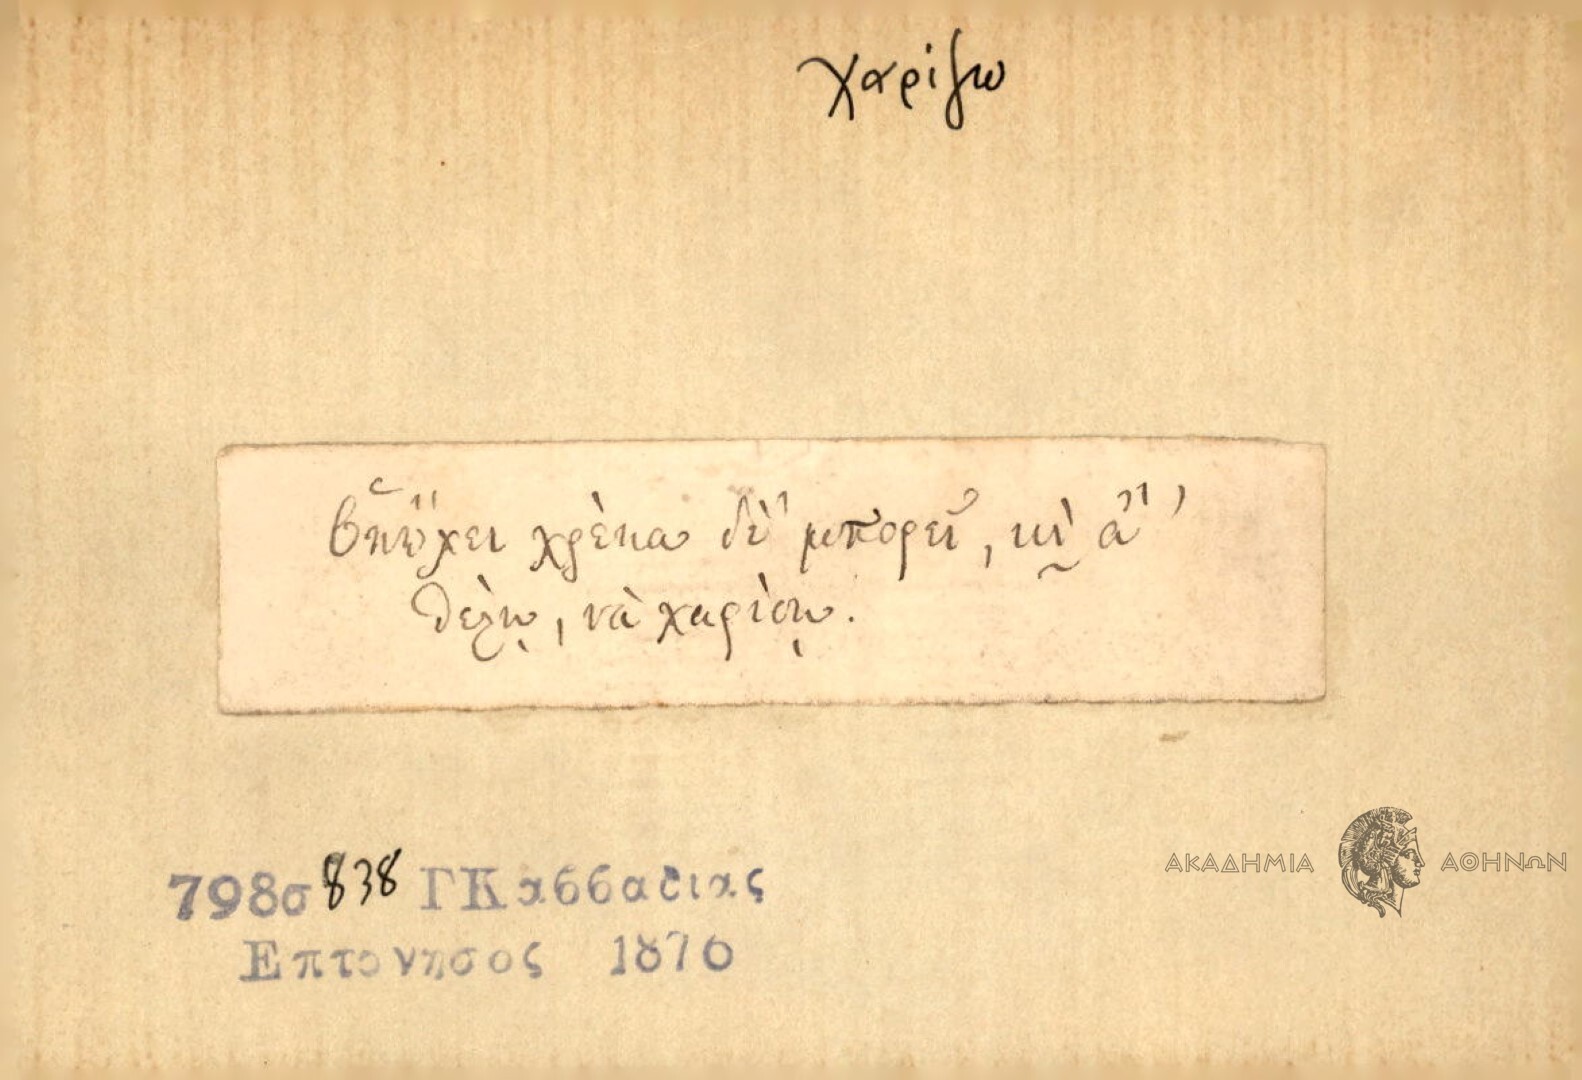 χαρίζω
Ὁπὤχει χρέια δὲ' μπορεῖ, κὶ ἂ'
θέλῃ, νὰ χαρίσῃ.
798σ 838 ΓΚαββαδιας
Επτανησος 1876
ΑΚΑΔΗΜΙΑ ΑΘΗΝΩΝ